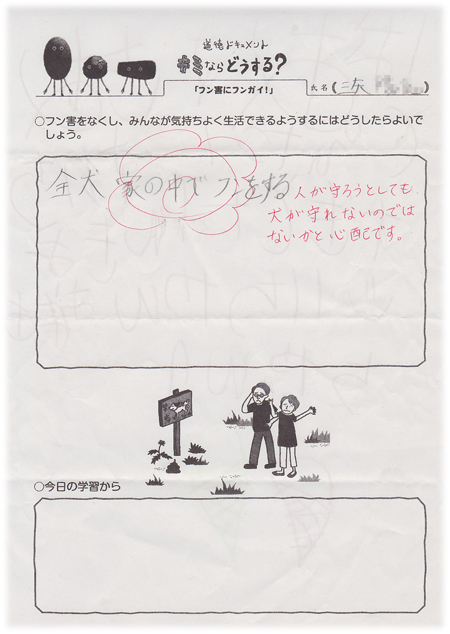 道徳ドキュメント
キミならどうする?
「フン害にフンガイ!」
氏名(
○フン害をなくし、みんなが気持ちよく生活できるようするにはどうしたらよいで
しょう。
全犬 家の中でフンをする
人が守ろうとしても
犬が守れないのでは
ないかと心配です。
○今日の学習から